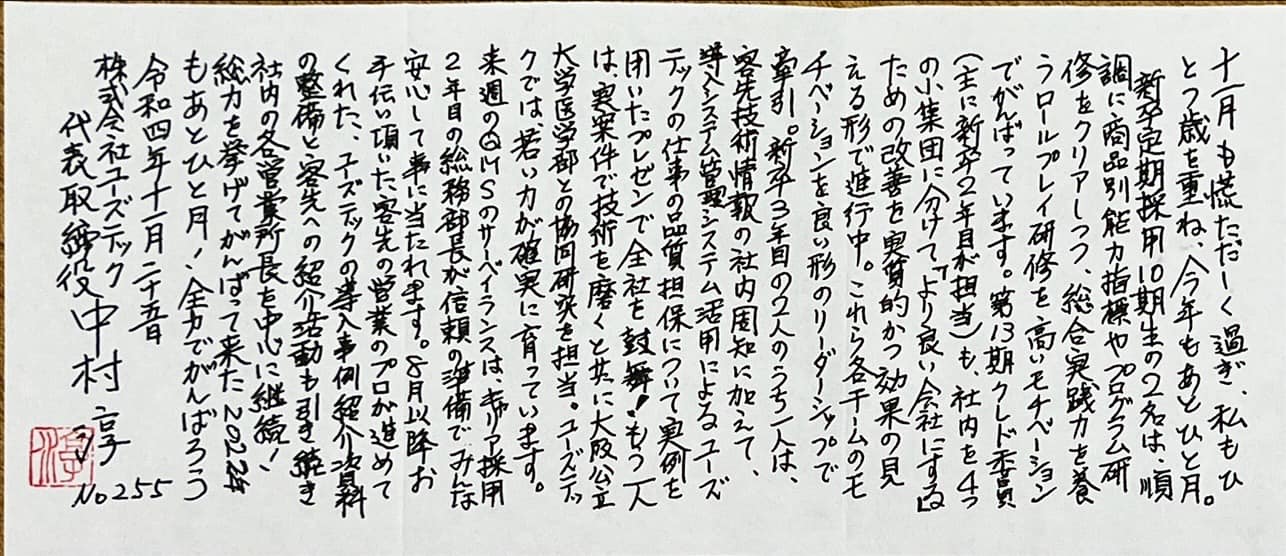 十一月も慌ただしく過ぎ、私もひ
とつ歳を重ね、今年もあとひと月。
新卒定期採用10期生の2名は、順
調に商品別能力指標やプログラム研
修をクリアしつつ、総合実践力を養
うロールプレイ研修を高いモチベーション
でがんばっています。第13期クレド委員
(主に新卒2年目が担当)も、社内を4つ
の小集団に分けて「より良い会社にする」
ための改善を実質的かつ効果の見
える形で進行中。これら各チームのモ
チベーションを良い形のリーダーシップで
牽引。新卒3年目の2人のうち一人は、
客先技術情報の社内周知に加えて、
導入システム管理システム活用によるユーズ
テックの仕事の品質担保について実例を
用いたプレゼンで全社を鼓舞!もう一人
は、実案件で技術を磨くと共に大阪公立
大学医学部との協同研究を担当。ユーズテッ
クでは若い力が確実に育っています。
来週のQMSのサーベイランスは、キャリア採用
2年目の総務部長が信頼の準備でみんな
安心して事に当たれます。8月以降お
手伝い頂いた客先の営業のプロが進めて
くれた、ユーズテックの導入事例紹介資料
の整備と客先への紹介活動も引き続き
社内の各営業所長を中心に継続!
総力を挙げてがんばって来た2022年
もあとひと月!全力でがんばろう
令和四年十一月二十五日
株式会社ユーズテック
代表取締役中村淳
No255